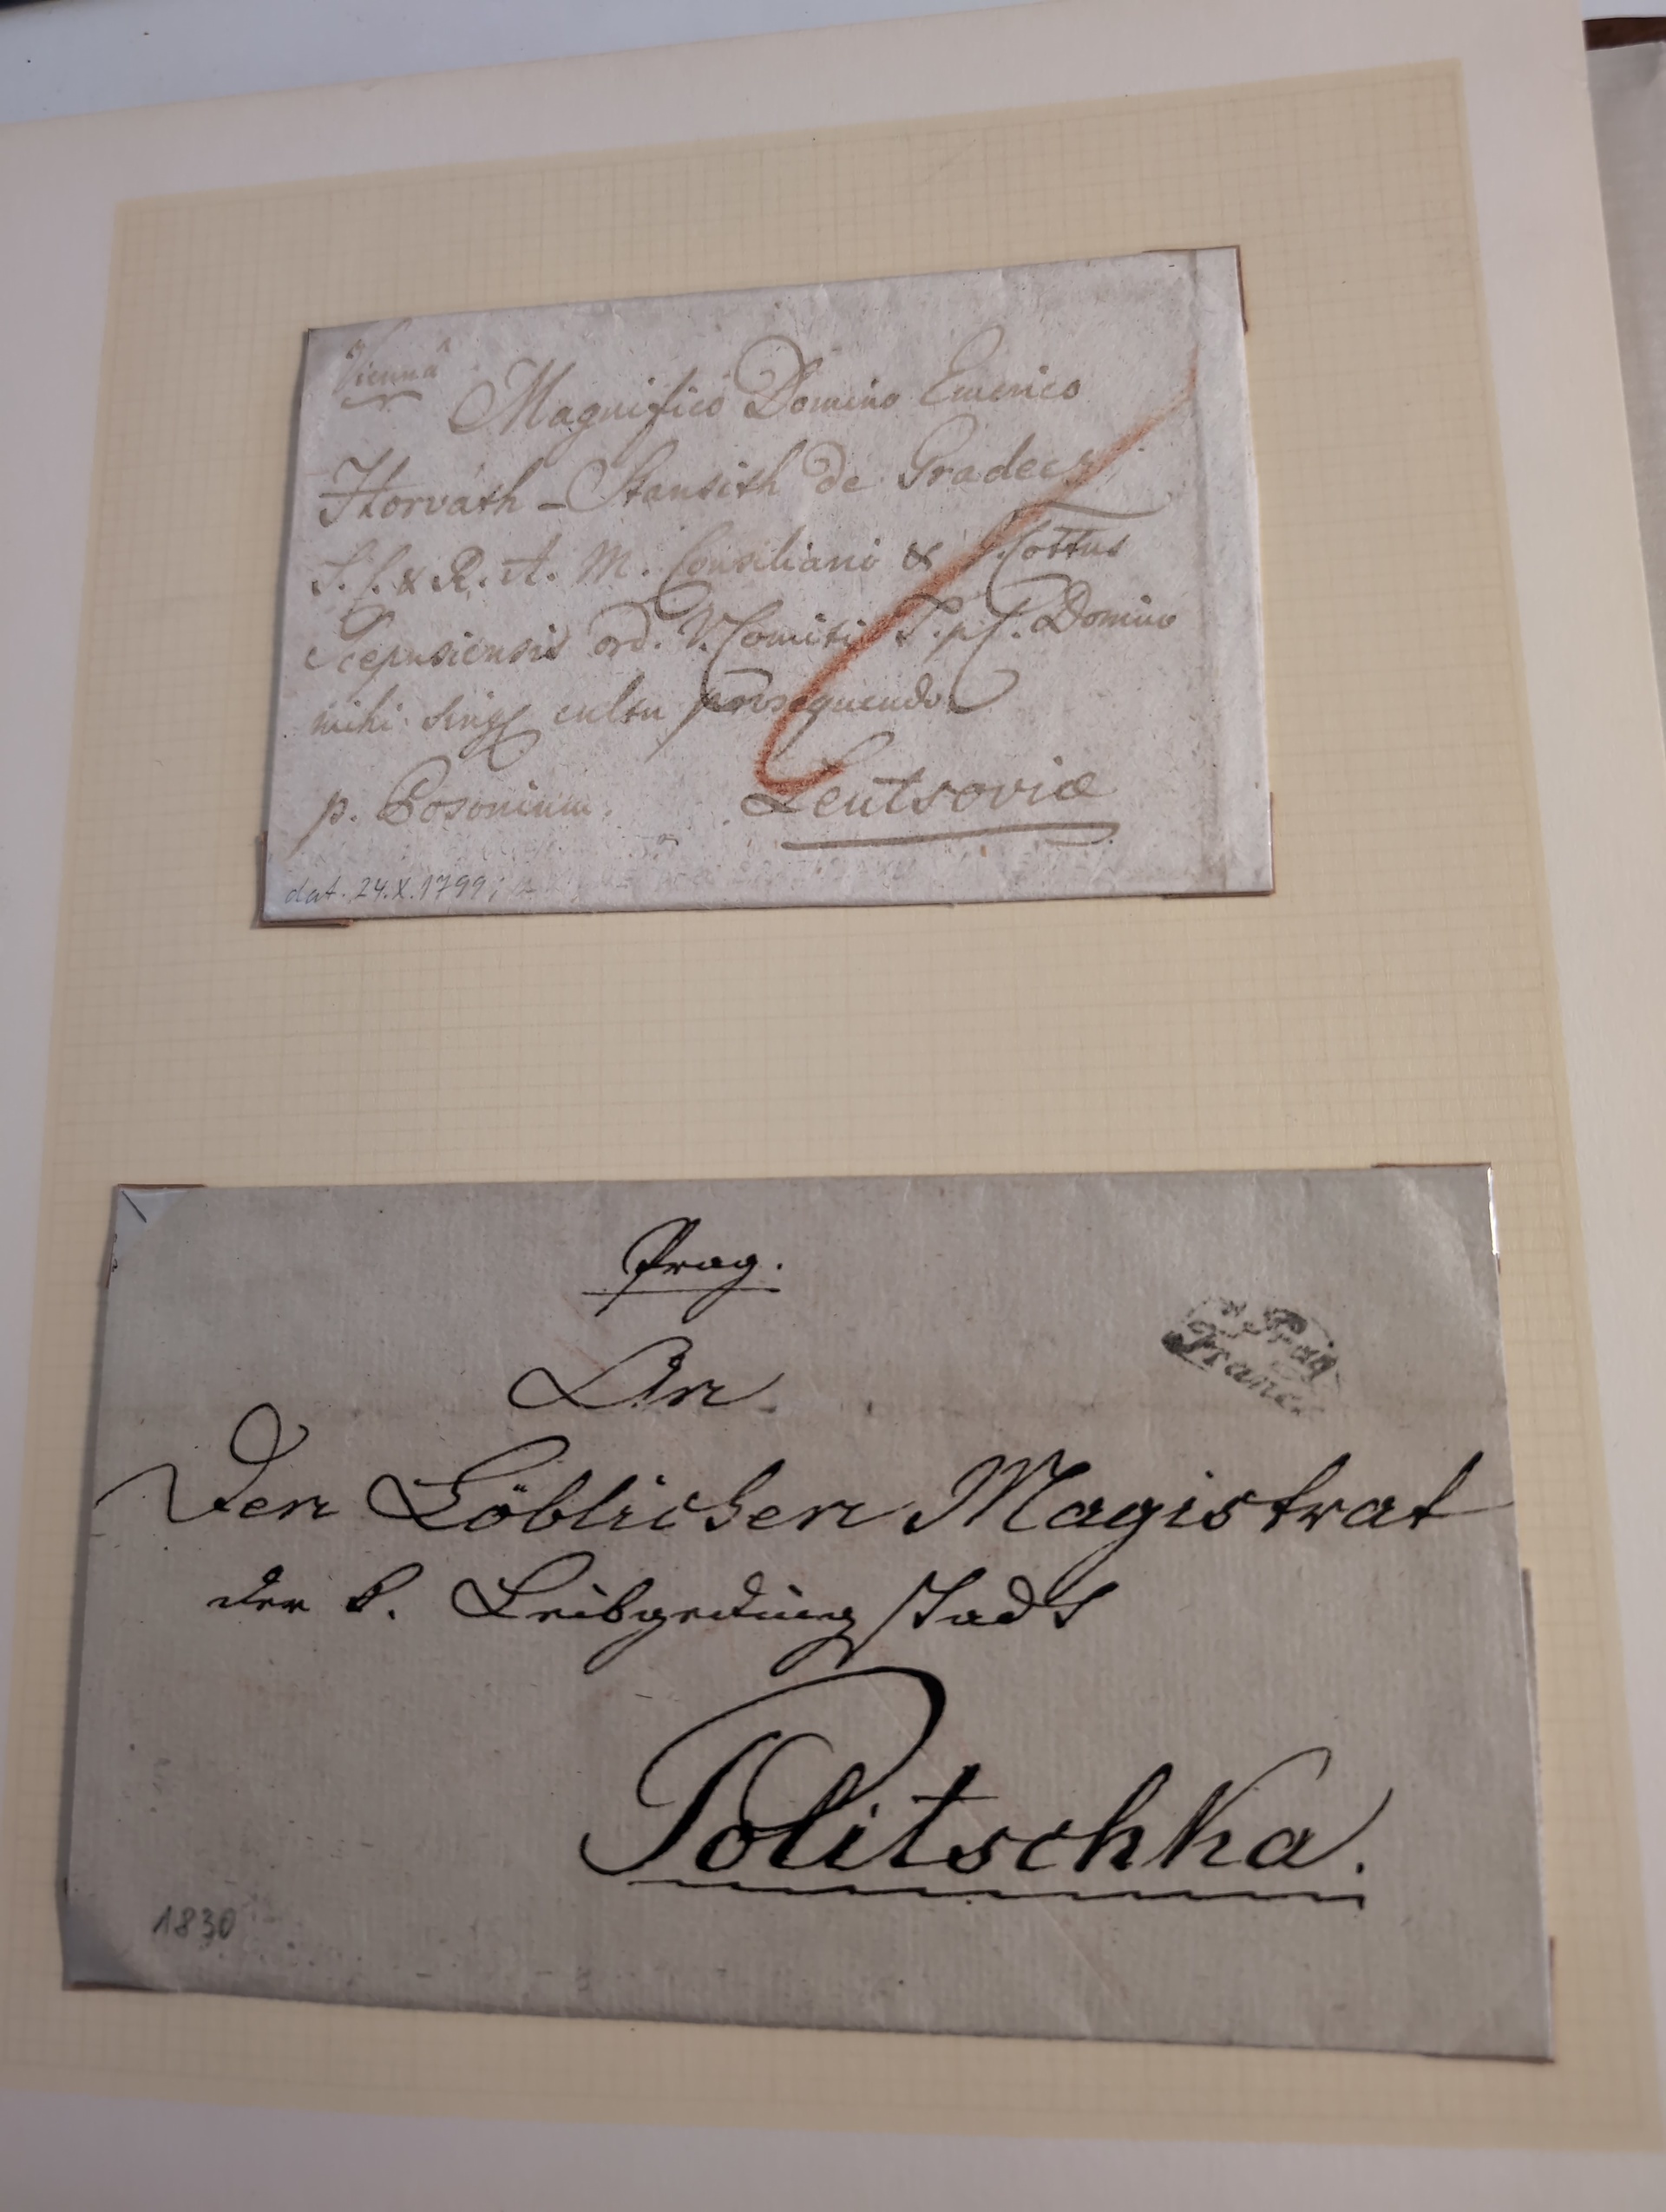 Viennâ
Magnifico Domino Emerico
Horváth-Stansith de Gradecz
S. C. & R. A. M. Consiliario & I. Cottus
Scepusiensis ord. V. Comiti D.
mihi cultu prosequendo
p. Posonium. Leutsoviæ
dat. 24.X.1799;
Prag.
v. Prag
Franco
An
Den Löblichen Magistrat
der k. Leibgedingstadt
Politschka.
1830